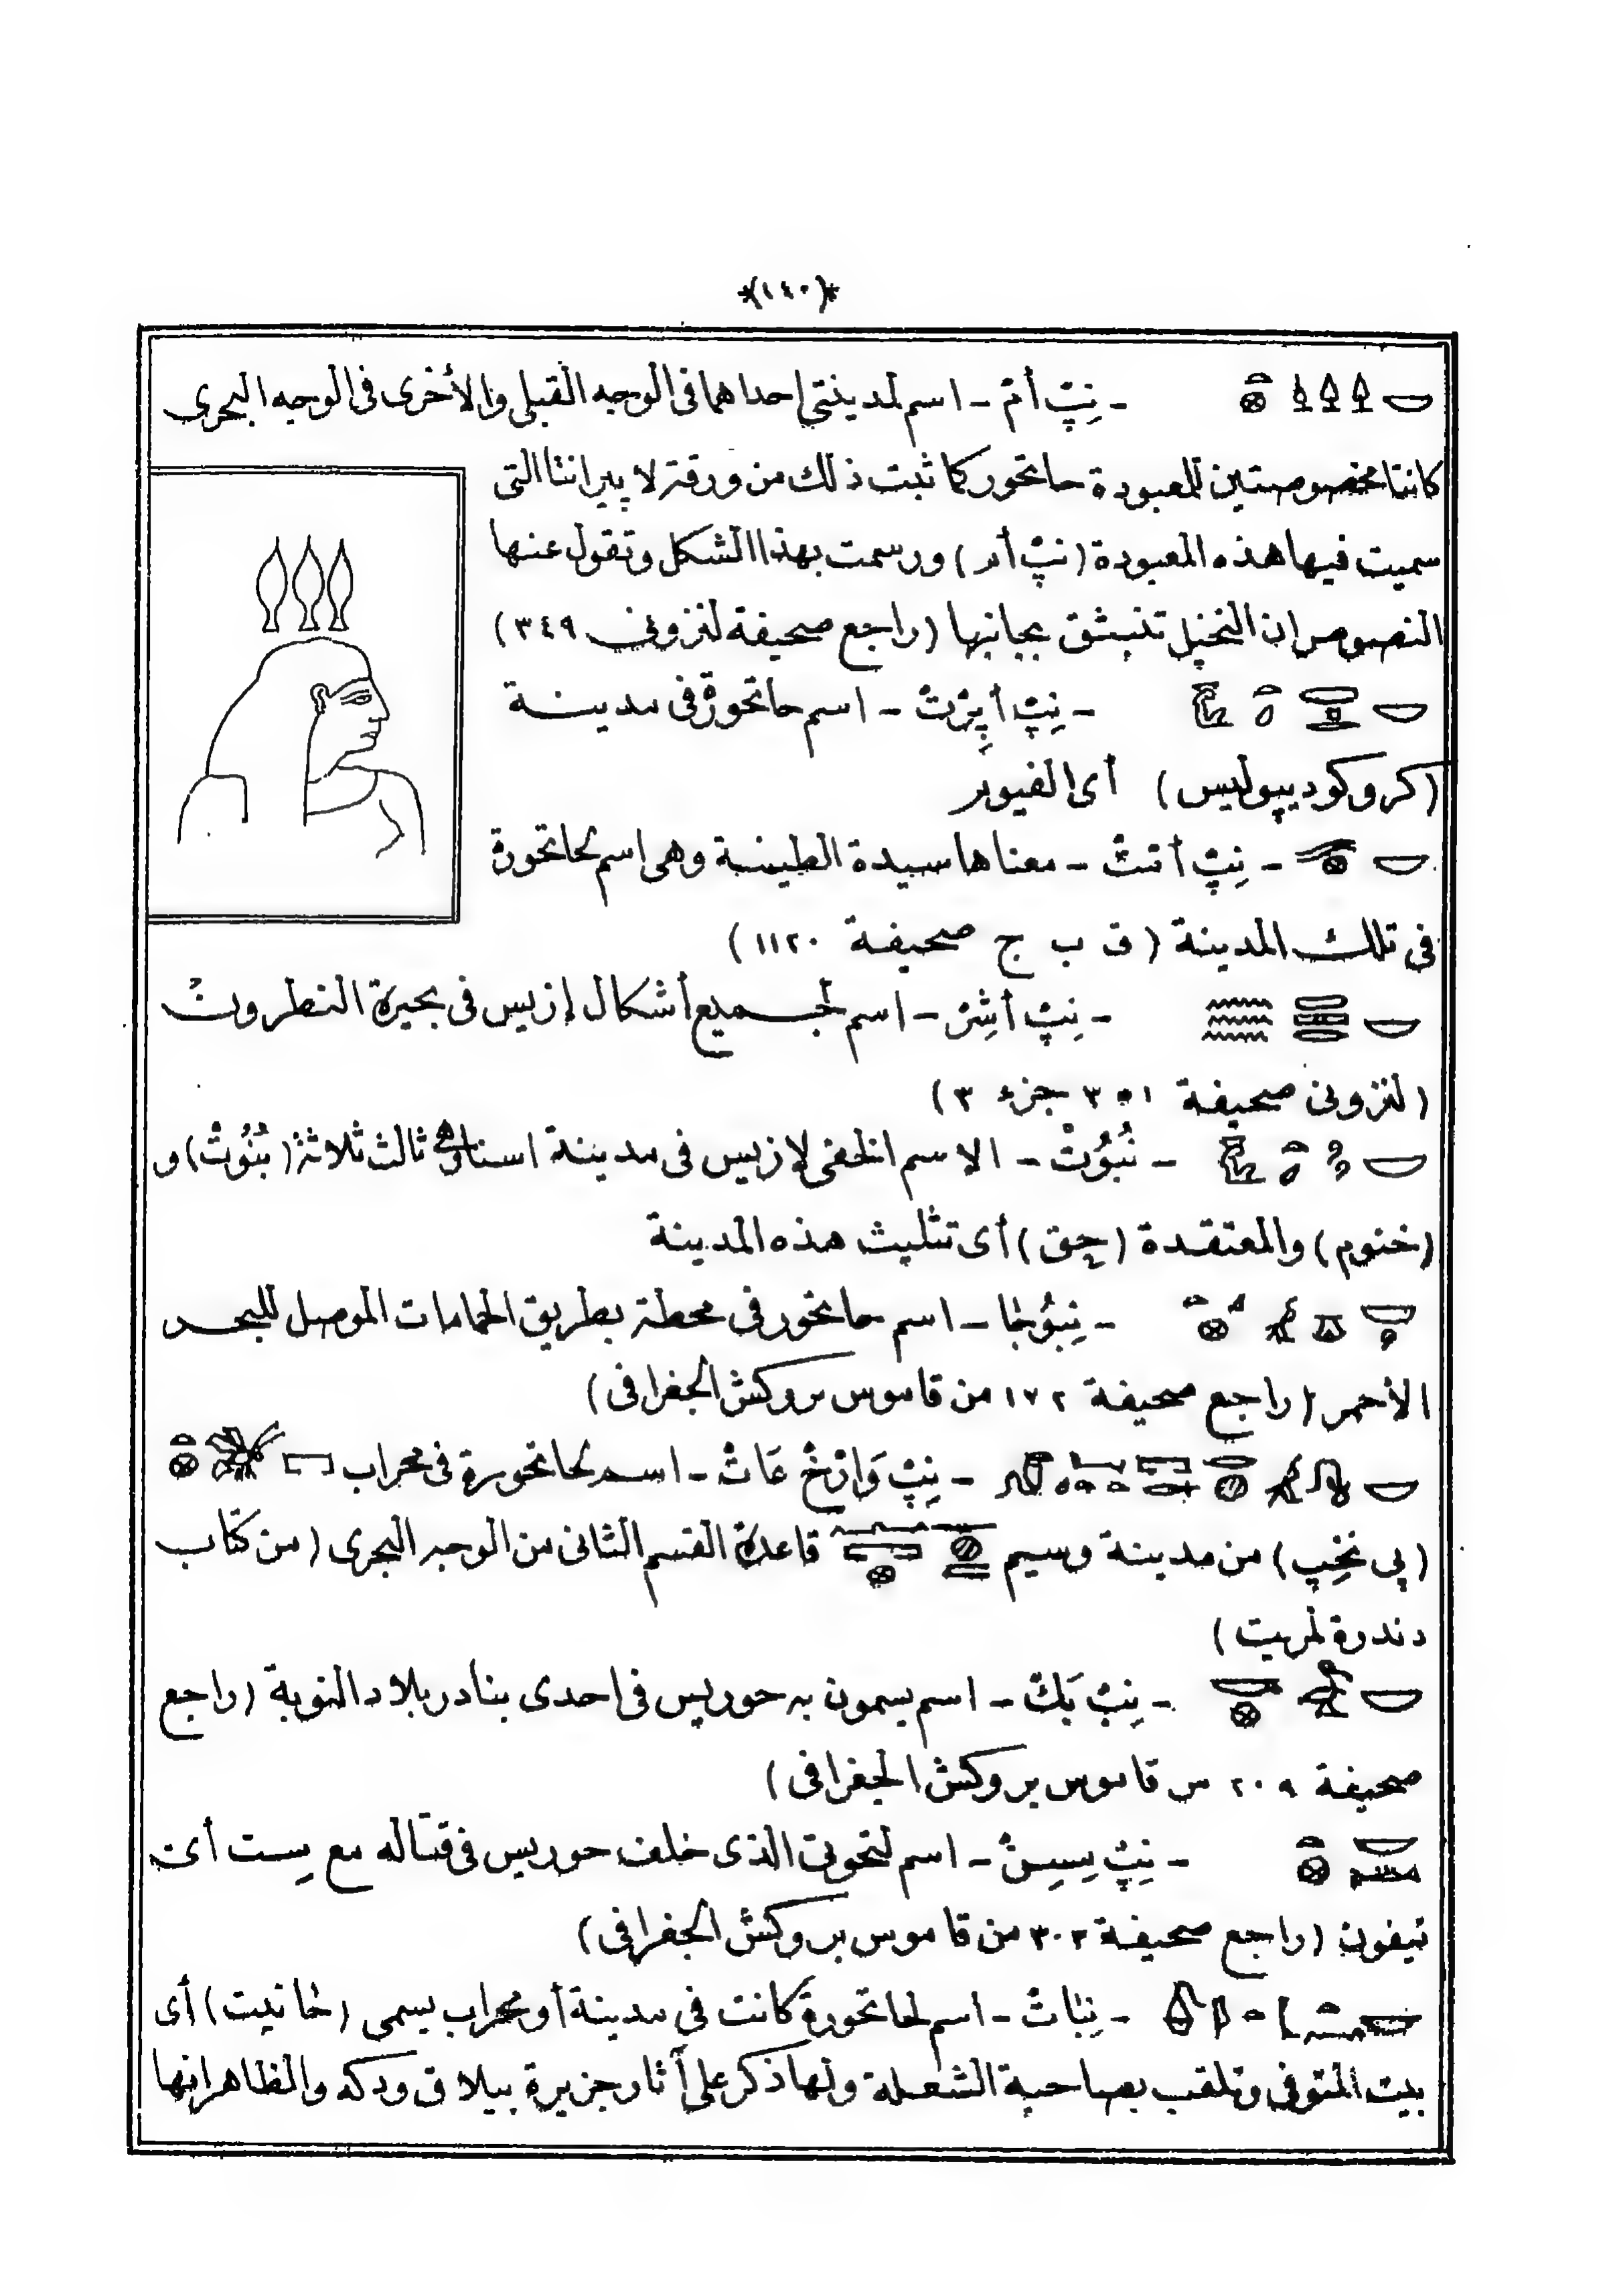 *(١٤٠)*
- نِبْ أَمْ - اسم لمدينتي إحداهما فى الوجه القبلى والأخرى فى الوجه البحرى
كانتا مخصوصتين للمعبودة حاتحور كما ثبت ذلك من ورقة لاپيرانتا التى
سميت فيها هذه المعبودة (نبْ أم) ورسمت بهذا الشكل وتقول عنها
النصوص ان النخيل تنبشق بجانبها (راجع صحيفة لنزونى ٣٤٩)
- نِبْ أَپِرْتْ - اسم حاتحورة فى مدينة
(كروكوديپوليس) أى الفيوم
- نِبْ أتتْ - معناها سيدة الطينة وهى اسم لحاتحورة
فى تلك المدينة (ق ب ج صحيفة ١١٢٠)
- نِبْ أَشِرْ - اسم لجميع أشكال إزيس فى بحيرة النطرون
(لنزونى صحيفة ٣٥١ جزء ٣)
- نُبُوُتْ - الاسم الخفى لازيس فى مدينة اسنا وهى ثالث ثلاثة (بْنُوتْ) و
(خنوم) والمعتقدة (حِق) أى تثليث هذه المدينة
- نِبُوُخَا - اسم حاتحور فى محطة بطريق الحمامات الموصل للبحر
الأحمر (راجع صحيفة ١٧٢ من قاموس بروكش الجغرافى)
- نِبْ وَارْخْ عَاتْ - اسم لحاتحورة فى محراب
(پى نخِپ) من مدينة وسيم قاعدة القسم الثانى من الوجه البحرى (من كتاب
دندرة لمريت)
- نِبْ بَكْ - اسم يسمون به حوريس فى احدى بنادر بلاد النوبة (راجع
صحيفة ٢٠٩ من قاموس بروكش الجغرافى)
- نِبْ سِسِنْ - اسم لتحوتى الذى خلف حوريس فى قتاله مع سِت أى
تيفون (راجع صحيفة ٣٠٢ من قاموس بروكش الجغرافى)
- نِبَاتْ - اسم لحاتحورة كانت في مدينة أو محراب يسمى (خانيت) أى
بيت المتوفى وتلقب بصاحبة الشعلة ولها ذكر على آثار جزيرة بيلاق ودكه والظاهر انها